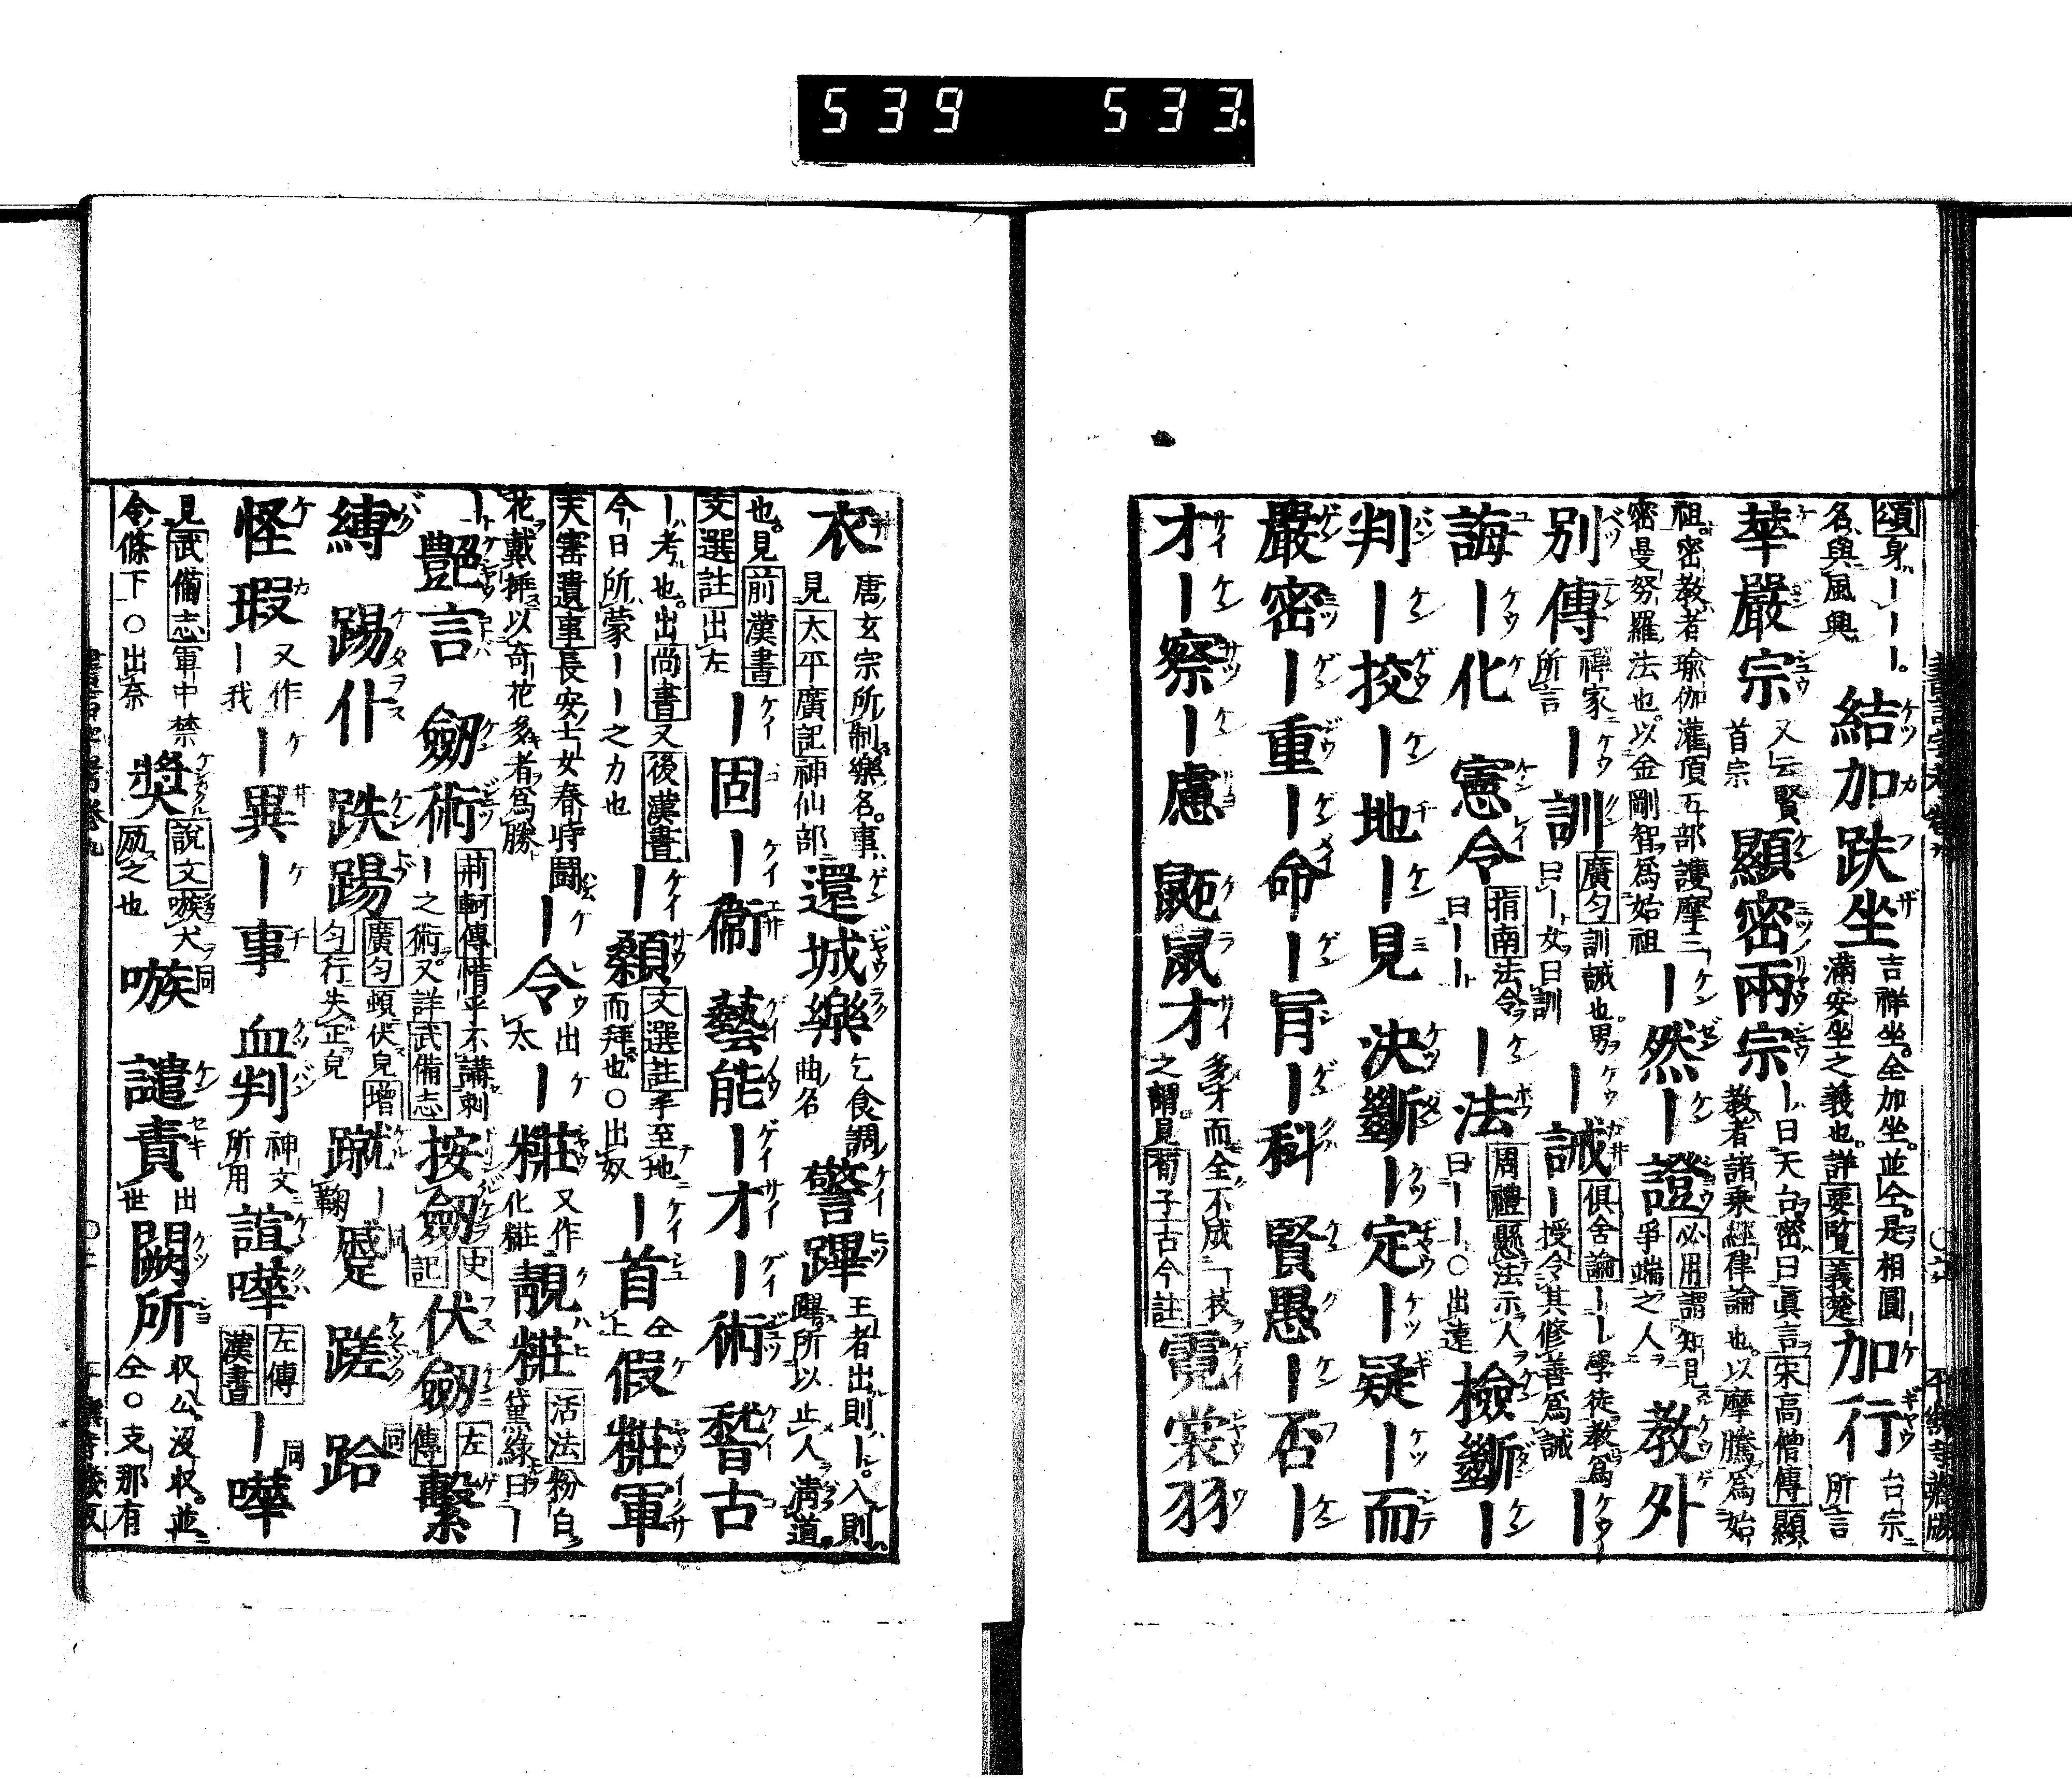 539 533
頌身ーーー。名與風興 結加趺坐 吉祥坐。全加坐。並仝。是相圓滿安坐之義也。詳要覽義楚 加行 台宗所言
華嚴宗 又云賢首宗 顯密兩宗 ー日天台密曰眞言宋高僧傳顯教者諸乘經律論也。以摩騰爲始
祖。密教者瑜伽灌頂五部護摩三密曼努羅法也。以金剛智爲始祖 ー然ー證 必用謂知見爭端之人 教外
別傳 禪家所言 ー訓 廣匀訓誡也。男曰ー女曰訓 ー誡 俱舍論ーー學徒教爲ー授令其修善爲誡 ー
誨ー化 憲令 指南法令曰ーー ー法 周禮懸法示人曰ーー○出遠 檢斷ー
判ー挍ー地ー見 決斷ー定ー疑ー而
嚴密ー重ー命ー旨ー科 賢愚ー否ー
才ー察ー慮 鼫鼠才 多才而全不成一技之謂見荀子古今註 霓裳羽
衣 唐玄宗所制樂名。事見太平廣記神仙部 還城樂 乞食調曲名 警蹕 王者出則ー。入則躍所以止人淸道。
也。見前漢書文選註出左 ー固ー衞 藝能ー才ー術 稽古
ー考也。出尚書又後漢書今日所蒙ーー之力也 ー顙 文選註手至地而拜也○出奴 ー首 仝上 假粧軍
天寶遺事長安士女春時鬪花戴揷以奇花多者爲勝 ー令 出太 ー粧 又作化粧 靚粧 活法粉白黛綠曰ー
ー 艷言 劔術 荊軻傳惜乎不講刺ー之術又詳武備志 按劔 史記 伏劔 左傳 繫
縛 踢仆 跌踢 廣匀頓伏皃增匀行失正皃 蹴 ー鞠 蹙 同 蹉 跲 同
怪瑕 又作ー我 ー異ー事 血判 神文所用 諠嘩 左傳漢書 ー嘩 同
見武備志軍中禁令條下○出奈 奬 說文嗾犬厉之也 嗾 同 譴責 出世 闕所 収公沒収。並仝○支那有